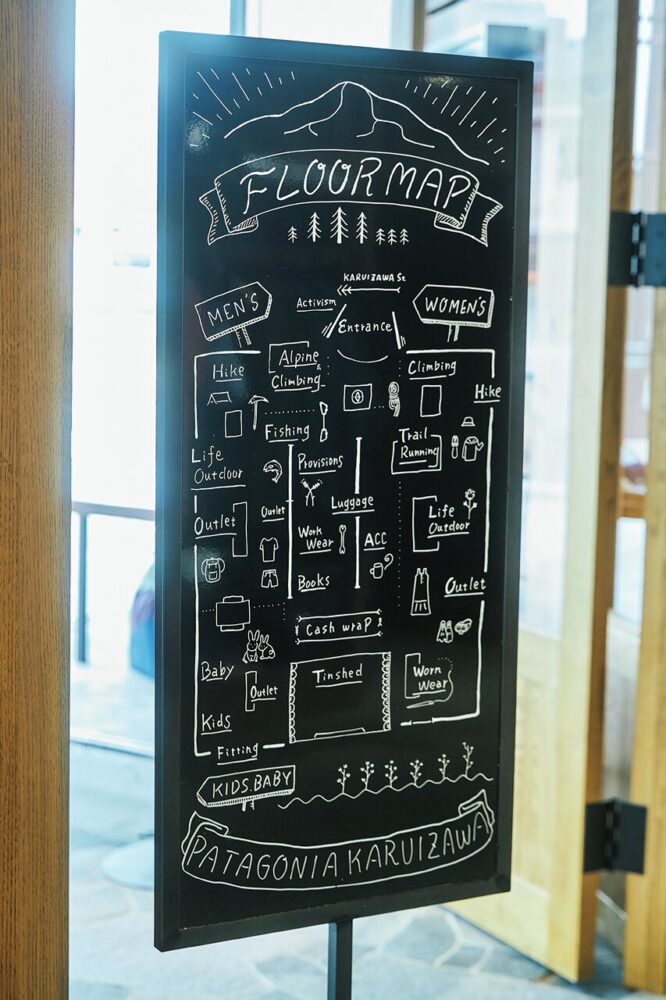 FLOOR MAP
KARUIZAWA St
MEN'S
Activism
Entrance
WOMEN'S
Hike
Alpine
&
Climbing
Climbing
Hike
Fishing
Trail
Running
Life
Outdoor
Provisions
Luggage
Outlet
Outlet
Work
Wear
ACC
Life
Outdoor
Books
Outlet
Cash wrap
Baby
Outlet
Tinshed
Worn
Wear
Kids
Fitting
KIDS.BABY
PATAGONIA KARUIZAWA